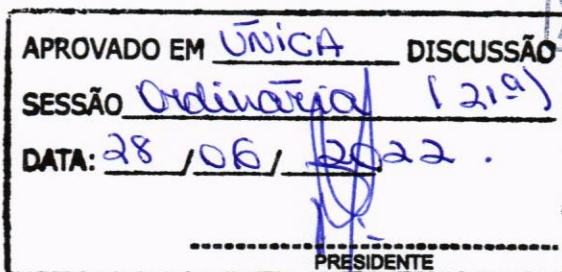 APROVADO EM ÚNICA DISCUSSÃO
SESSÃO Ordinária (21ª)
DATA: 28 / 06 / 2022.
PRESIDENTE